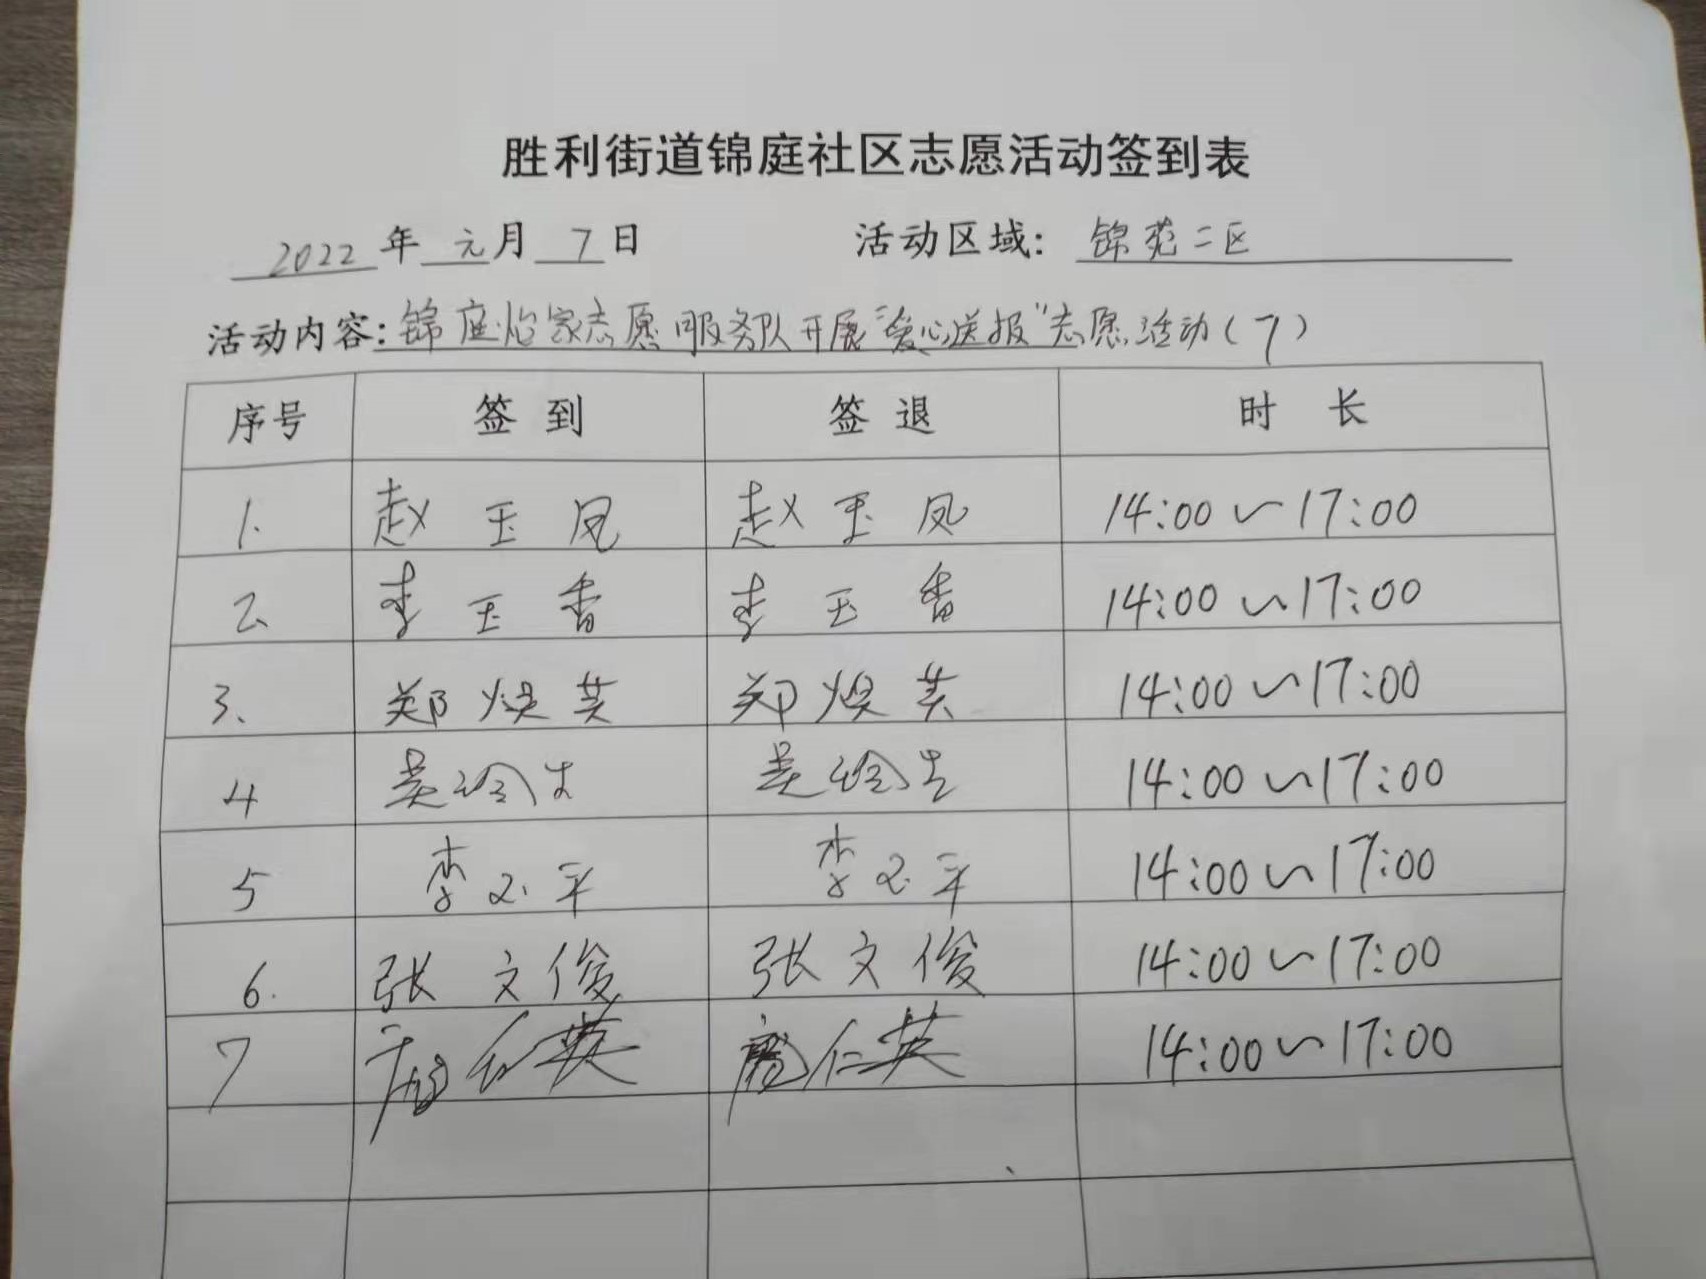 胜利街道锦庭社区志愿活动签到表
2022年元月7日 活动区域：锦苑二区
活动内容：锦庭怡家志愿服务队开展"爱心送报"志愿活动(7)
序号 签到 签退 时长
1. 赵玉凤 赵玉凤 14:00~17:00
2. 李玉香 李玉香 14:00~17:00
3. 郑焕英 郑焕英 14:00~17:00
4 14:00~17:00
5 李 平 李 平 14:00~17:00
6. 张文俊 张文俊 14:00~17:00
7 仁英 仁英 14:00~17:00